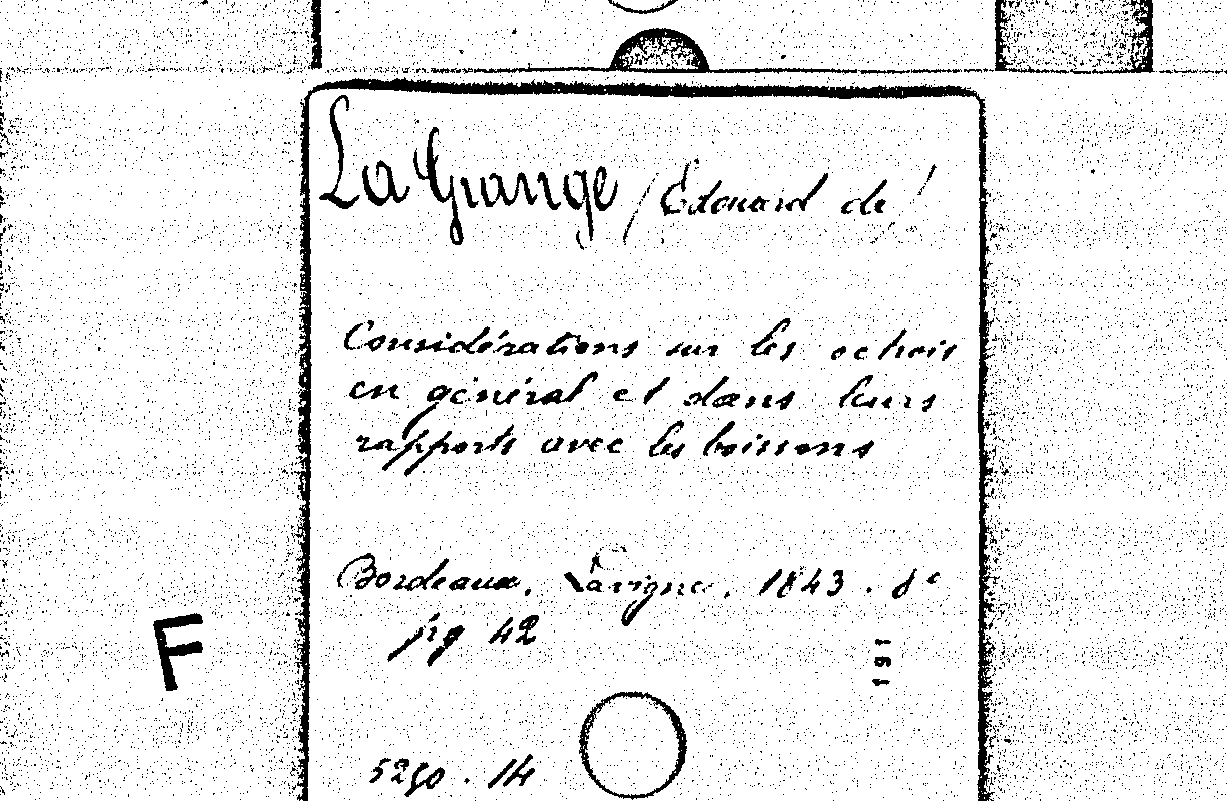 La Grange (Edouard de)
Considérations sur les octrois
en général et dans leurs
rapports avec les boissons
Bordeaux, Lavigne, 1843. 8°
pag 42
F
191
5250. 14